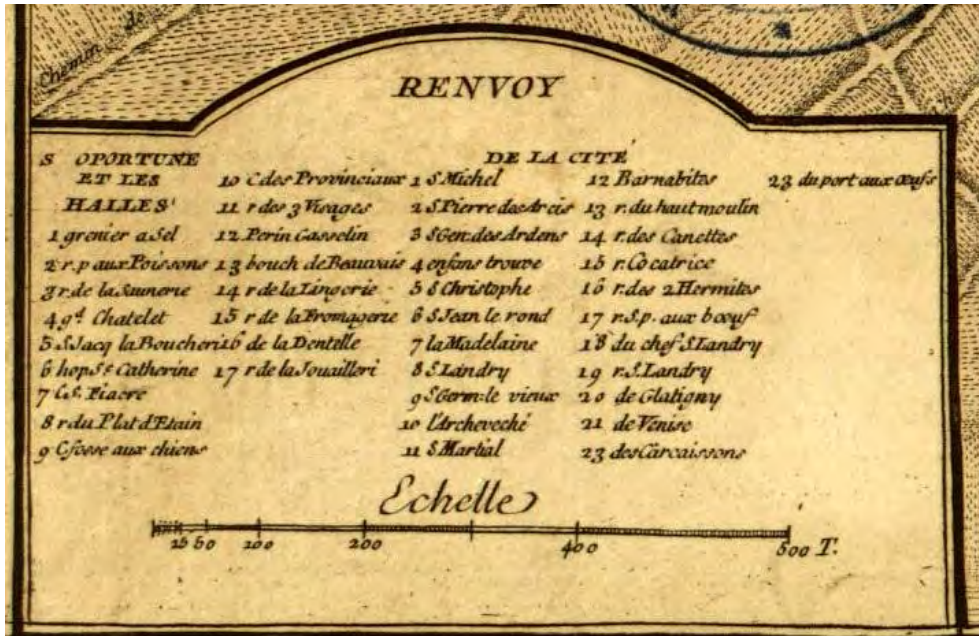 Chemin de
RENVOY
S OPORTUNE
ET LES
HALLES
1 grenier a Sel
2 r. p aux Poissons
3 r. de la Saunerie
4 gd. Chatelet
5 S Jacq la Boucheri
6 hop Ste Catherine
7 C. S. Fiacre
8 r du Plat d'Etain
9 C fosse aux chiens
10 C des Provinciaux
11 r des 3 Visages
12 Perin Gasselin
13 bouch de Beauvais
14 r de la Lingerie
15 r de la Fromagerie
16 de la Dentelle
17 r de la Jouailleri
DE LA CITÉ
1 S. Michel
2 S. Pierre des Arcis
3 S Gen: des Ardens
4 enfans trouve
5 S Christophe
6 S Jean le rond
7 la Madelaine
8 S. Landry
9 S Germ: le vieux
10 l'Archeveché
11 S. Martial
12 Barnabites
13 r. du haut moulin
14 r. des Canettes
15 r. Cocatrice
16 r. des 2 Hermites
17 r. S. p. aux bœuf
18 du chef S Landry
19 r. S. Landry
20 de Glatigny
21 de Venise
23 des Carcaissons
23 du port aux œufs
Echelle
25 50 100 200 400 500 T.